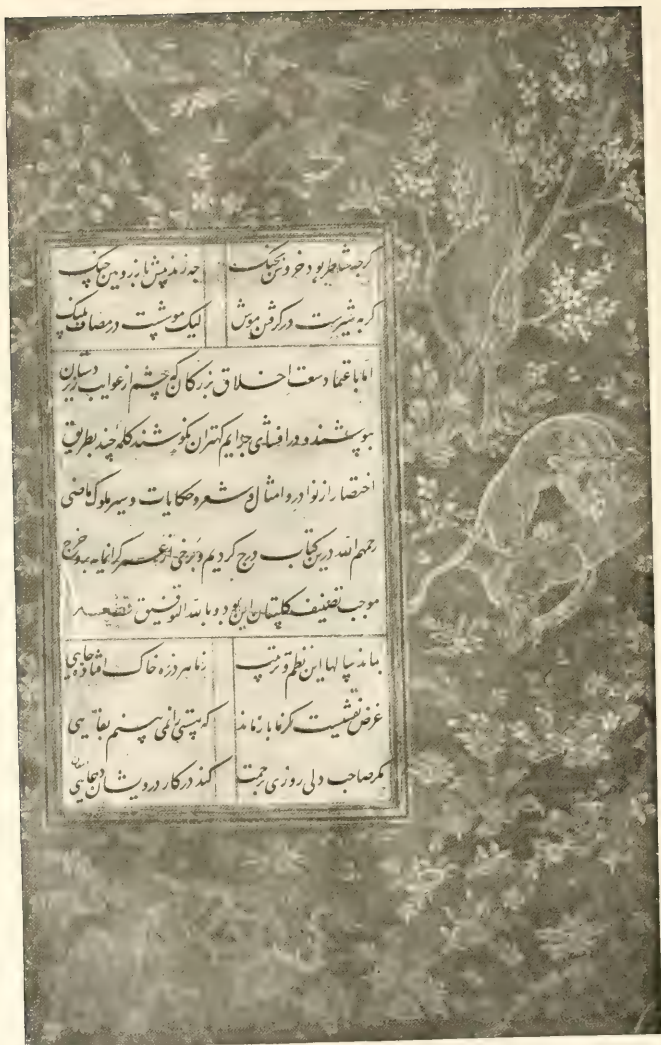 گرچه شاطر بود خروس بجنگ چه زند پیش باز رویین چنگ
گربه شیرست در گرفتن موش لیک موشست در مصاف پلنگ
اما باعتماد سعت اخلاق بزرکان که چشم از عوایب زیردستان
بپوشند و در افشای جرایم کهتران نکوشند کلمه چند بطریق
اختصار از نوادر و امثال و شعر و حکایات و سیر ملوک ماضی
رحمهم الله درین کتاب درج کردیم و برخی از عمر گرانمایه برو خرج
موجب تصنیف گلستان این بود و بالله التوفیق قطعه
بماند سالها این نظم و ترتیب زما هر ذره خاک افتاده جایی
غرض نقشیست کز ما باز ماند که هستی را نمی بینم بقایی
مگر صاحب دلی روزی برحمت کند در کار درویشان دعایی